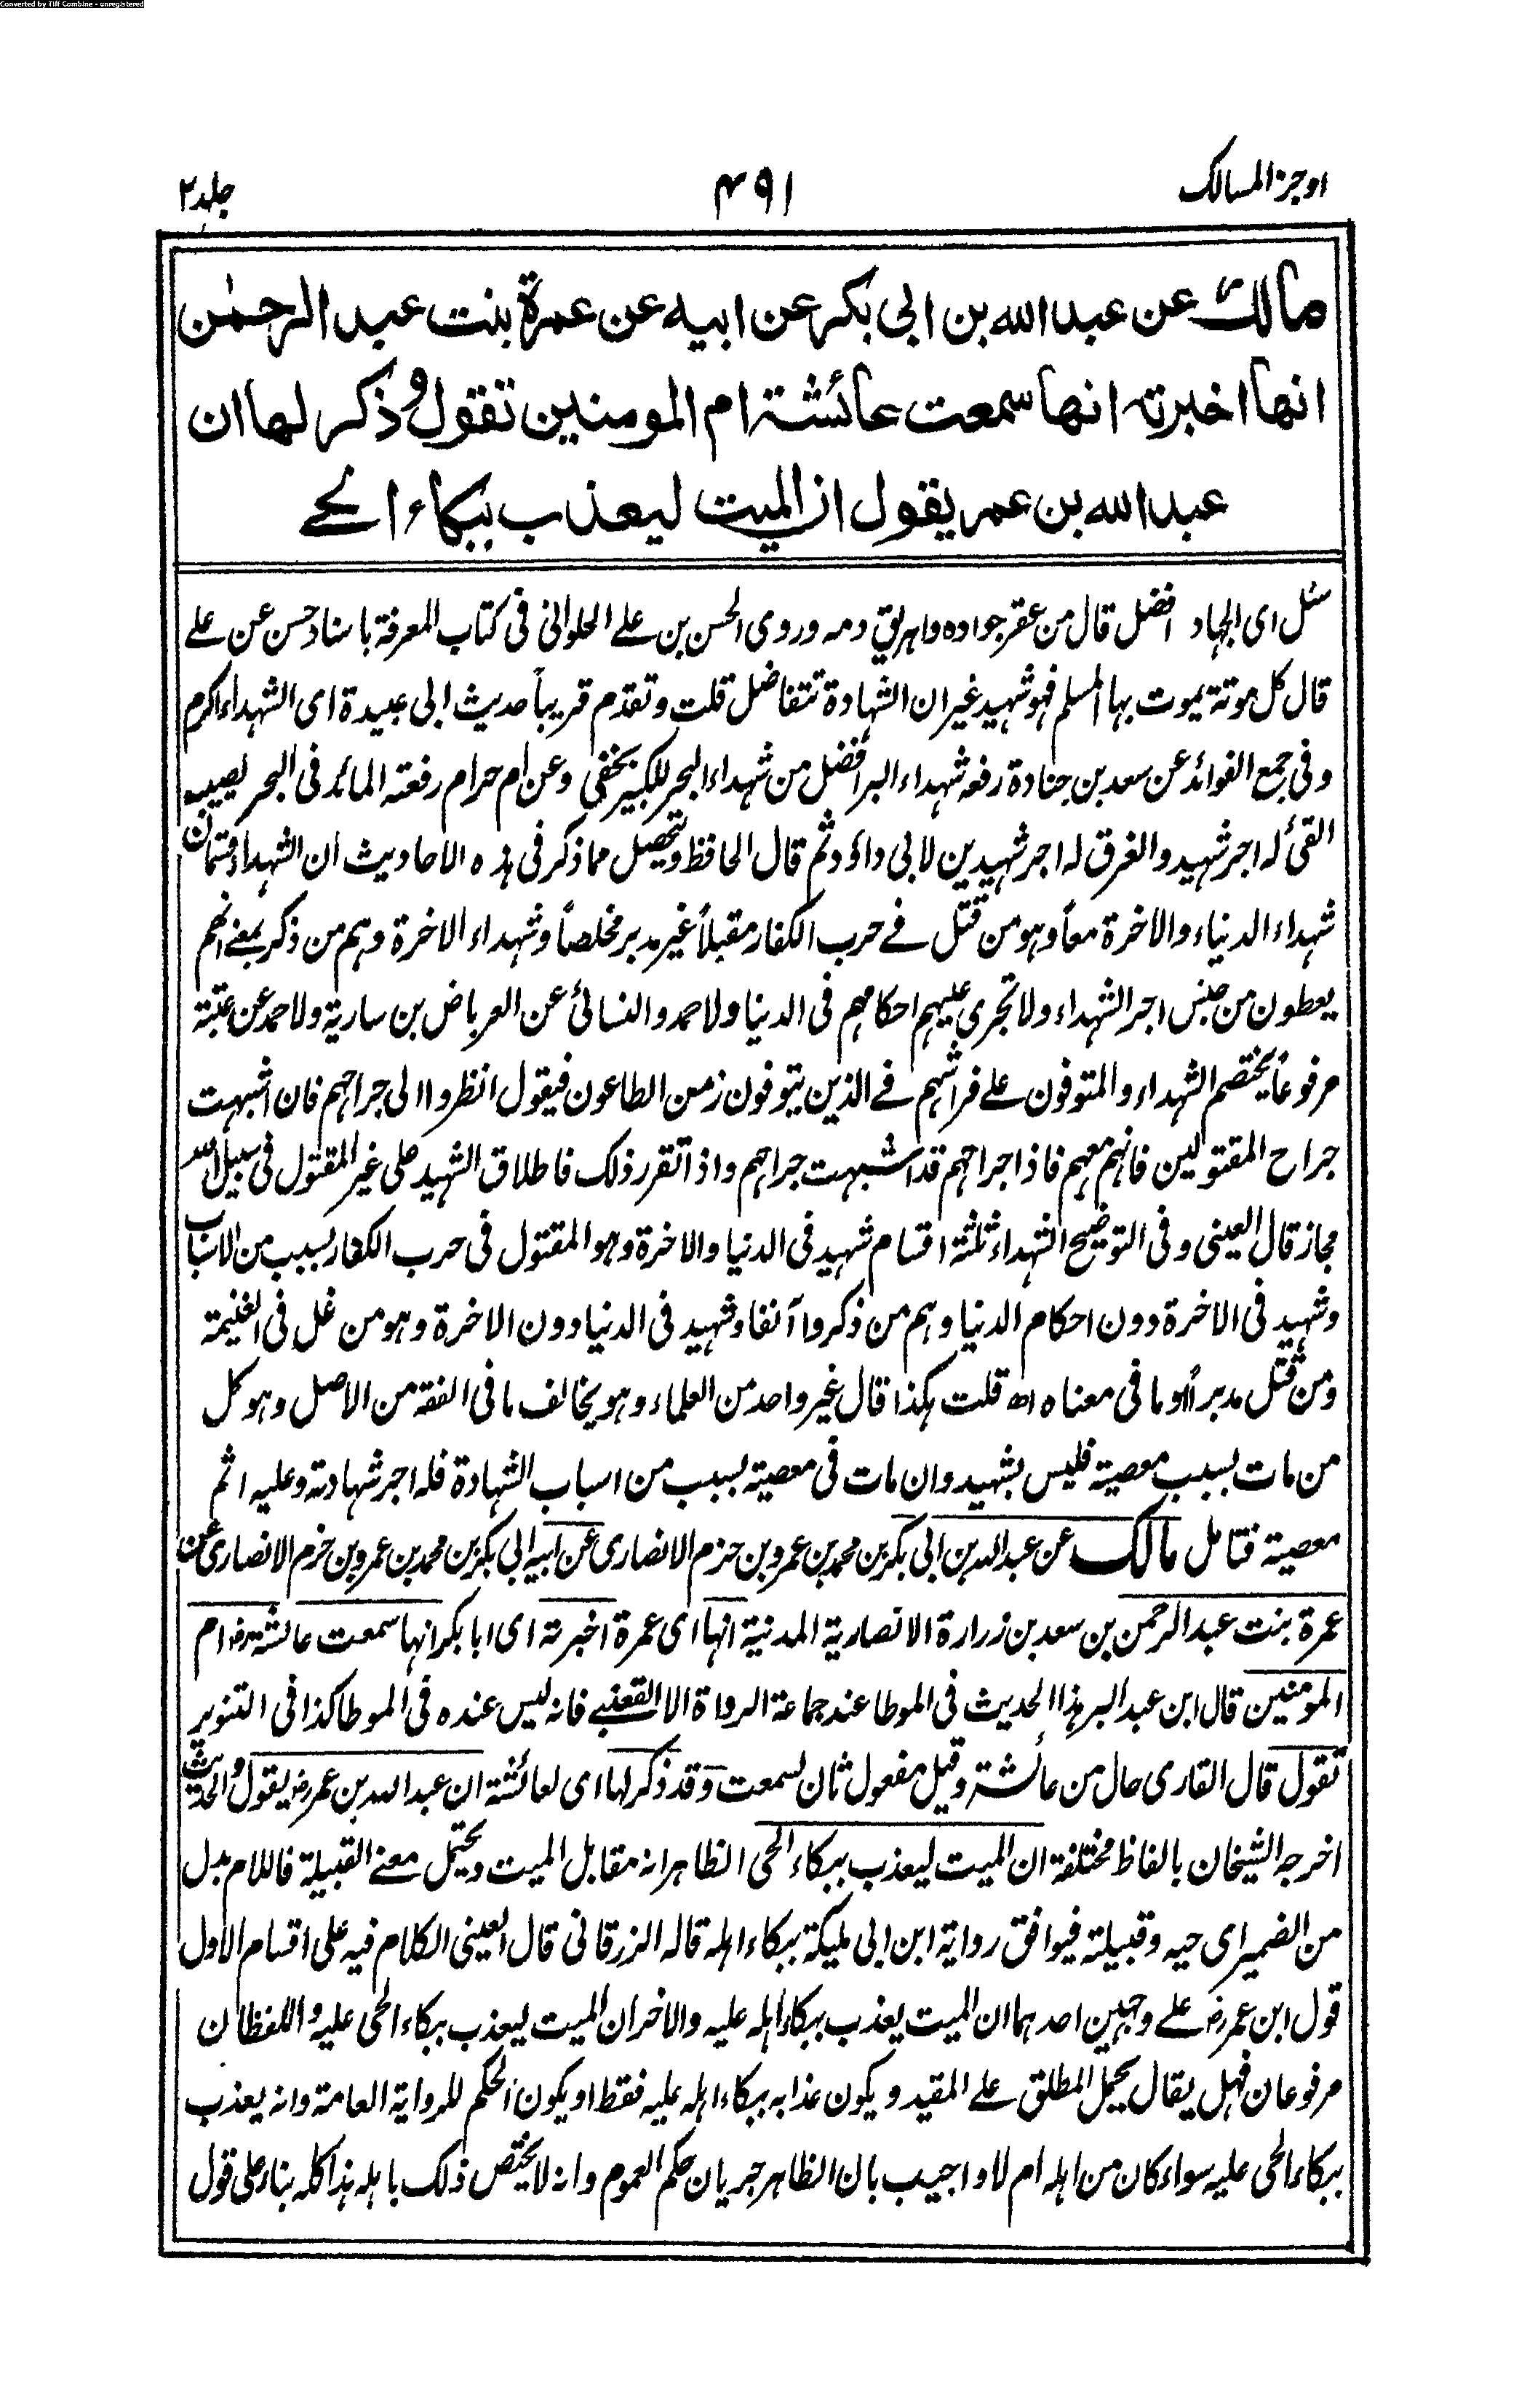 Converted by Tiff Combine - unregistered
اوجز المسالك
۴۹۱
جلد ۲
مالك عن عبد الله بن ابى بكر عن ابيه عن عمرة بنت عبد الرحمٰن
انها اخبرته انها سمعت عائشة ام المومنين تقول و ذكر لها ان
عبد الله بن عمر يقول ان الميت ليعذب ببكاء الحى
سئل اى الجهاد افضل قال من عقر جواده واهريق دمه وروى الحسن بن على الحلوانى فى كتاب المعرفة باسناد حسن عن على
قال كل موتة يموت بها المسلم فهو شهيد غير ان الشهادة تتفاضل قلت وتقدم قريباً حديث ابى عبيدة اى الشهداء اكرم
وفى جمع الفوائد عن سعد بن جنادة رفعه شهداء البر افضل من شهداء البحر للكبير بخفى وعن ام حرام رفعته المائد فى البحر يصيبه
القئ له اجر شهيد والغرق له اجر شهيدين لابى داؤد ثم قال الحافظ ويتحصل مما ذكر فى هذه الاحاديث ان الشهداء قسمان
شهداء الدنياء والاخرة معاً وهو من قتل فى حرب الكفار مقبلاً غير مدبر مخلصاً وشهداء الاخرة وهم من ذكر بمعنى انهم
يعطون من جنس اجر الشهداء ولا تجرى عليهم احكامهم فى الدنيا ولاحمد والنسائى عن العرباض بن سارية ولاحمد عن عتبة
مرفوعاً يختصم الشهداء والمتوفون على فراشهم فى الذين يتوفون زمن الطاعون فيقول انظروا الى جراحهم فان اشبهت
جراح المقتولين فانهم معهم فاذا جراحهم قد اشبهت جراحهم واذا تقرر ذلك فاطلاق الشهيد على غير المقتول فى سبيل الله
مجاز قال العينى وفى التوضيح الشهداء ثلثة اقسام شهيد فى الدنيا والاخرة وهو المقتول فى حرب الكفار بسبب من الاسباب
وشهيد فى الاخرة دون احكام الدنيا وهم من ذكروا آنفا وشهيد فى الدنيا دون الاخرة وهو من غل فى الغنيمة
ومن قتل مدبراً او ما فى معناه اه قلت هكذا قال غير واحد من العلماء وهو يخالف ما فى الفقه من الاصل وهو كل
من مات بسبب معصية فليس بشهيد وان مات فى معصية بسبب من اسباب الشهادة فله اجر شهادته وعليه اثم
معصية فتامل مالك عن عبد الله بن ابى بكر بن محمد بن عمرو بن حزم الانصارى عن ابيه ابى بكر بن محمد بن عمرو بن حزم الانصارى عن
عمرة بنت عبد الرحمن بن سعد بن زرارة الانصارية المدنية انها اى عمرة اخبرته اى ابا بكر انها سمعت عائشة رض ام
المومنين قال ابن عبد البر هذا الحديث فى الموطا عند جماعة الرواة الا القعنبى فانه ليس عنده فى الموطا كذا فى التنوير
تقول قال القارى حال من عائشة وقيل مفعول ثان لسمعت وقد ذكر لها اى لعائشة ان عبد الله بن عمر رض يقول والحديث
اخرجه الشيخان بالفاظ مختلفة ان الميت ليعذب ببكاء الحى الظاهر انه مقابل الميت ويحتمل معنى القبيلة فاللام بدل
من الضمير اى حيه وقبيلته فيوافق رواية ابن ابى مليكة ببكاء اهله قاله الزرقانى قال العينى الكلام فيه على اقسام الاول
قول ابن عمر رض على وجهين احدهما ان الميت يعذب ببكاء اهله عليه والاخر ان الميت ليعذب ببكاء الحى عليه واللفظان
مرفوعان فهل يقال يحمل المطلق على المقيد ويكون عذابه ببكاء اهله عليه فقط او يكون الحكم للرواية العامة وانه يعذب
ببكاء الحى عليه سواء كان من اهله ام لا واجيب بان الظاهر جريان حكم العموم وانه لا يختص ذلك باهله هذا كله بناء على قول